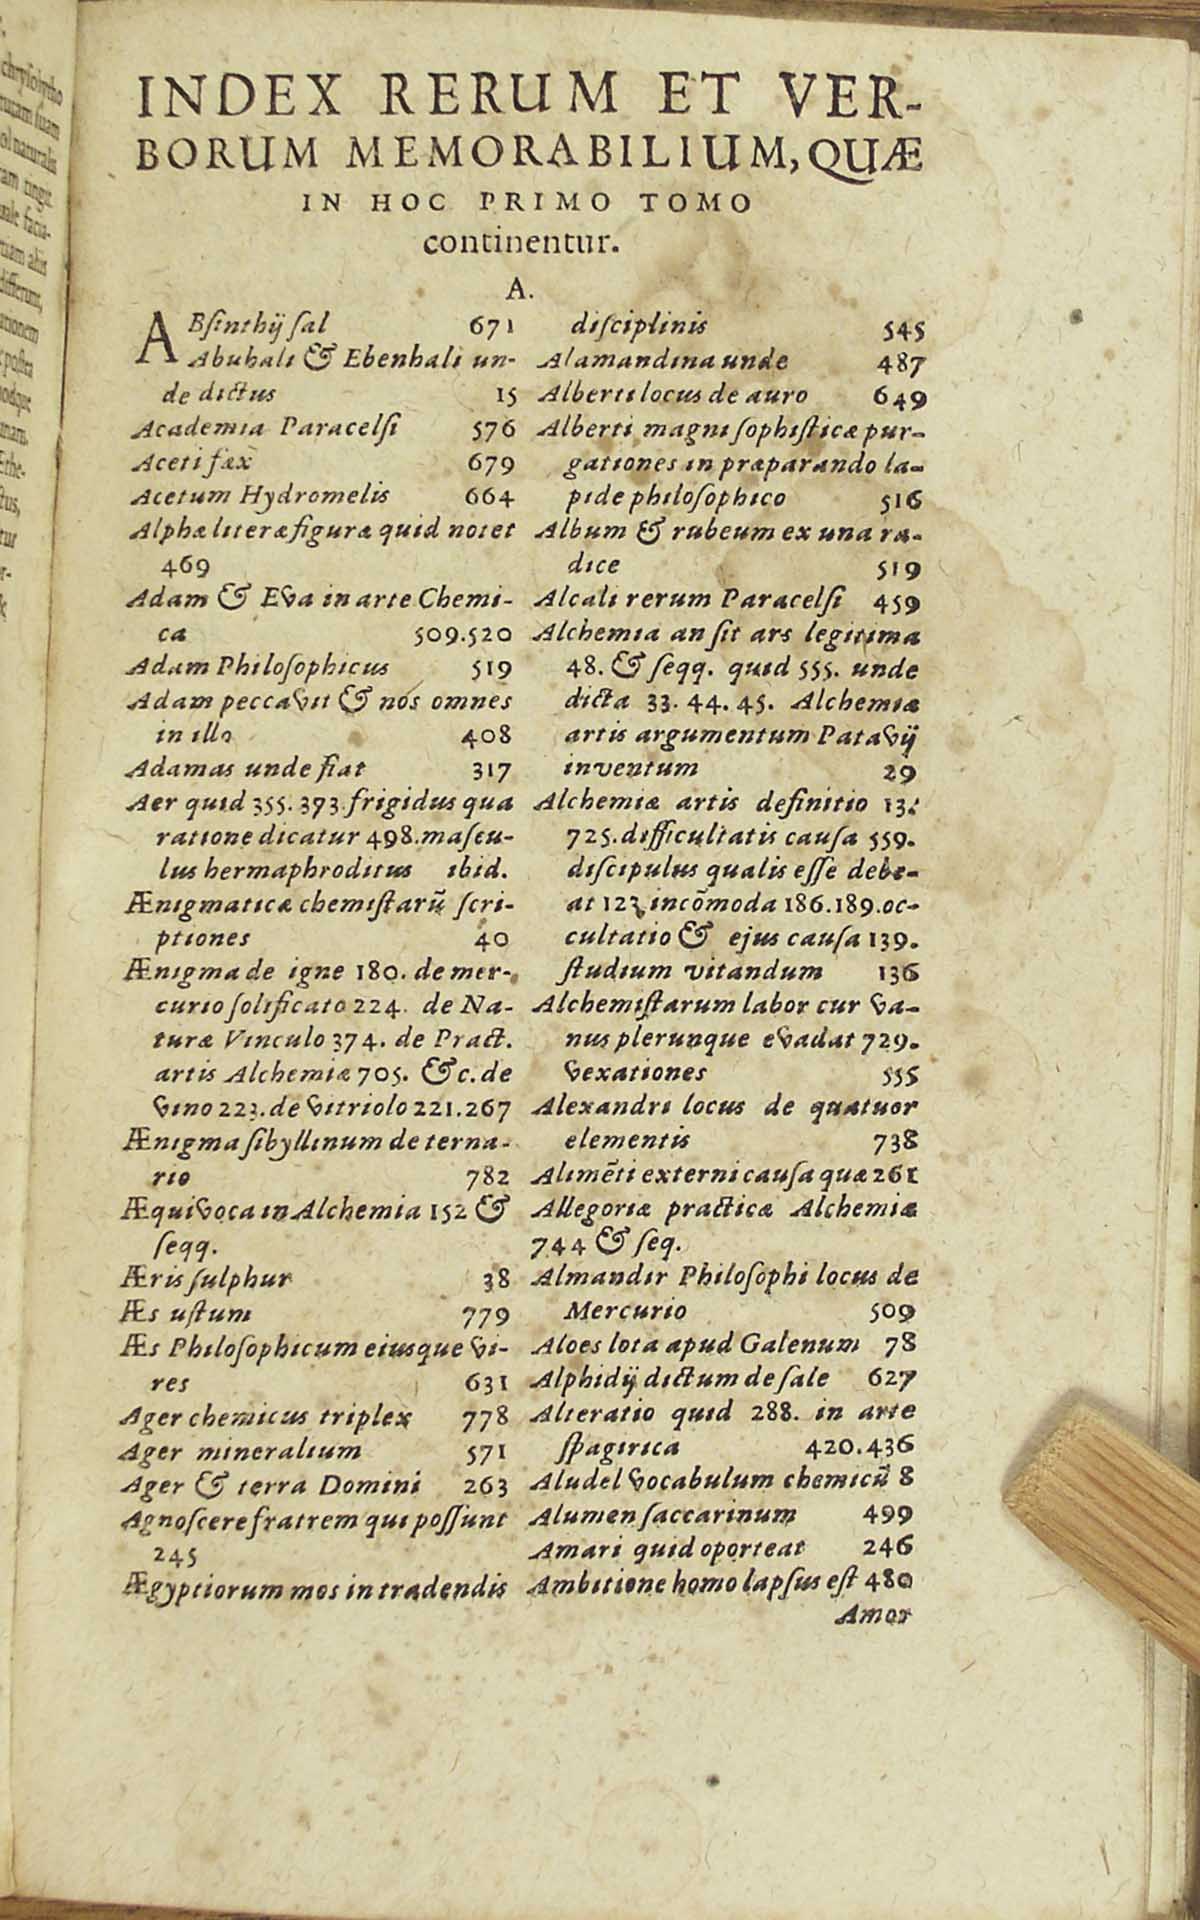 INDEX RERUM ET VER-
BORUM MEMORABILIUM, QUÆ
IN HOC PRIMO TOMO
continentur.
A.
ABſinthij ſal 671
Abuhali & Ebenhali un-
de dictus 15
Academia Paracelſi 576
Aceti fæx 679
Acetum Hydromelis 664
Alphæ literæ figura quid notet
469
Adam & Eva in arte Chemi-
ca 509.520
Adam Philoſophicus 519
Adam peccavit & nos omnes
in illo 408
Adamas unde fiat 317
Aer quid 355.373. frigidus qua
ratione dicatur 498. maſcu-
lus hermaphroditus ibid.
Ænigmaticæ chemiſtarũ ſcri-
ptiones 40
Ænigma de igne 180. de mer-
curio ſolificato 224. de Na-
turæ Vinculo 374. de Pract.
artis Alchemiæ 705. &c. de
vino 223. de vitriolo 221.267
Ænigma ſibyllinum de terna-
rio 782
Æquivoca in Alchemia 152 &
ſeqq.
Æris ſulphur 38
Æs uſtum 779
Æs Philoſophicum eiusque vi-
res 631
Ager chemicus triplex 778
Ager mineralium 571
Ager & terra Domini 263
Agnoſcere fratrem qui poſſunt
245
Ægyptiorum mos in tradendis
diſciplinis 545
Alamandina unde 487
Alberti locus de auro 649
Alberti magni ſophiſticæ pur-
gationes in præparando la-
pide philoſophico 516
Album & rubeum ex una ra-
dice 519
Alcali rerum Paracelſi 459
Alchemia an ſit ars legitima
48. & ſeqq. quid 555. unde
dicta 33. 44. 45. Alchemiæ
artis argumentum Patavij
inventum 29
Alchemiæ artis definitio 13.
725. difficultatis cauſa 559.
diſcipulus qualis eſſe debe-
at 123. incõmoda 186.189. oc-
cultatio & ejus cauſa 139.
ſtudium vitandum 136
Alchemiſtarum labor cur va-
nus plerunque evadat 729.
vexationes 555
Alexandri locus de quatuor
elementis 738
Alimẽti externi cauſa quæ 261
Allegoriæ practicæ Alchemiæ
744 & ſeq.
Almandir Philoſophi locus de
Mercurio 509
Aloes lota apud Galenum 78
Alphidij dictum de ſale 627
Alteratio quid 288. in arte
ſpagirica 420.436
Aludel vocabulum chemicũ 8
Alumen ſaccarinum 499
Amari quid oporteat 246
Ambitione homo lapſus eſt 480
Amor